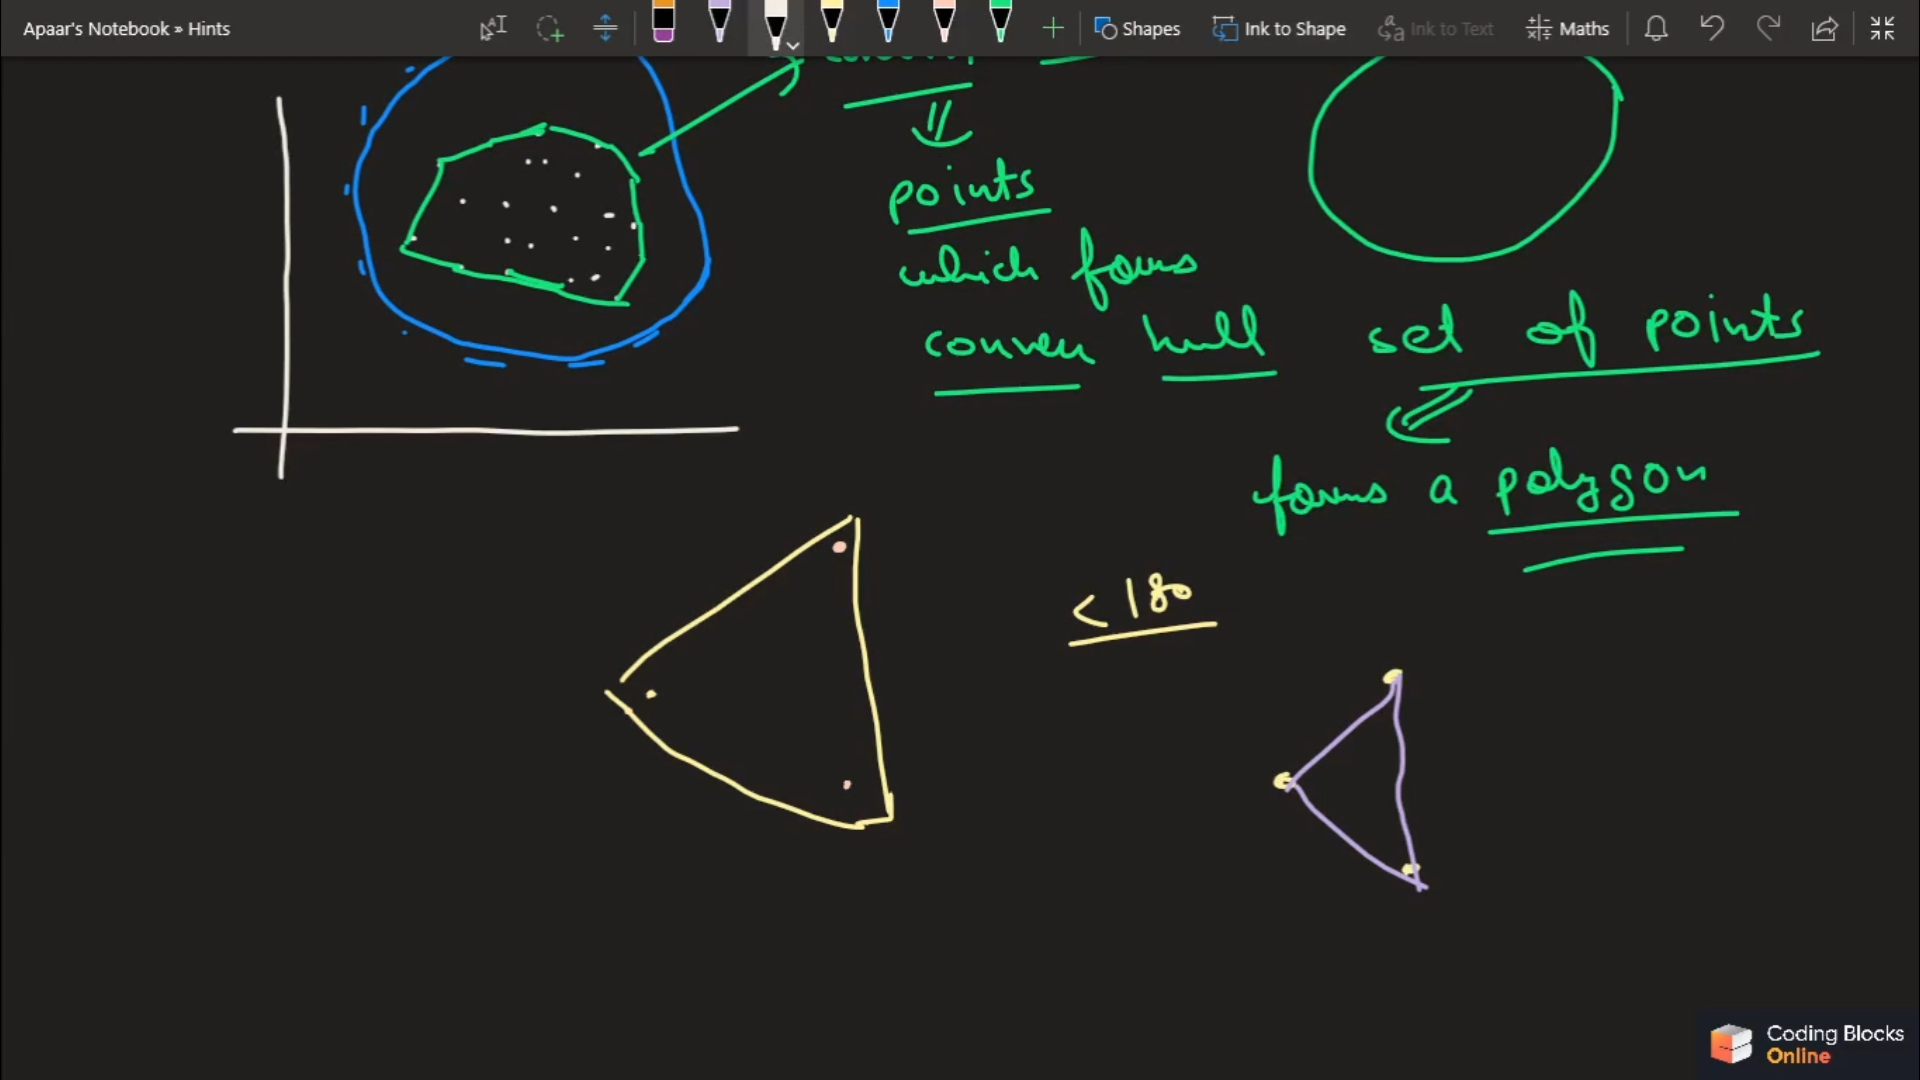 Apaar's Notebook » Hints
Shapes
Ink to Shape
Ink to Text
Maths
points
which forms
convex hull
set of points
forms a polygon
< 180
Coding Blocks
Online